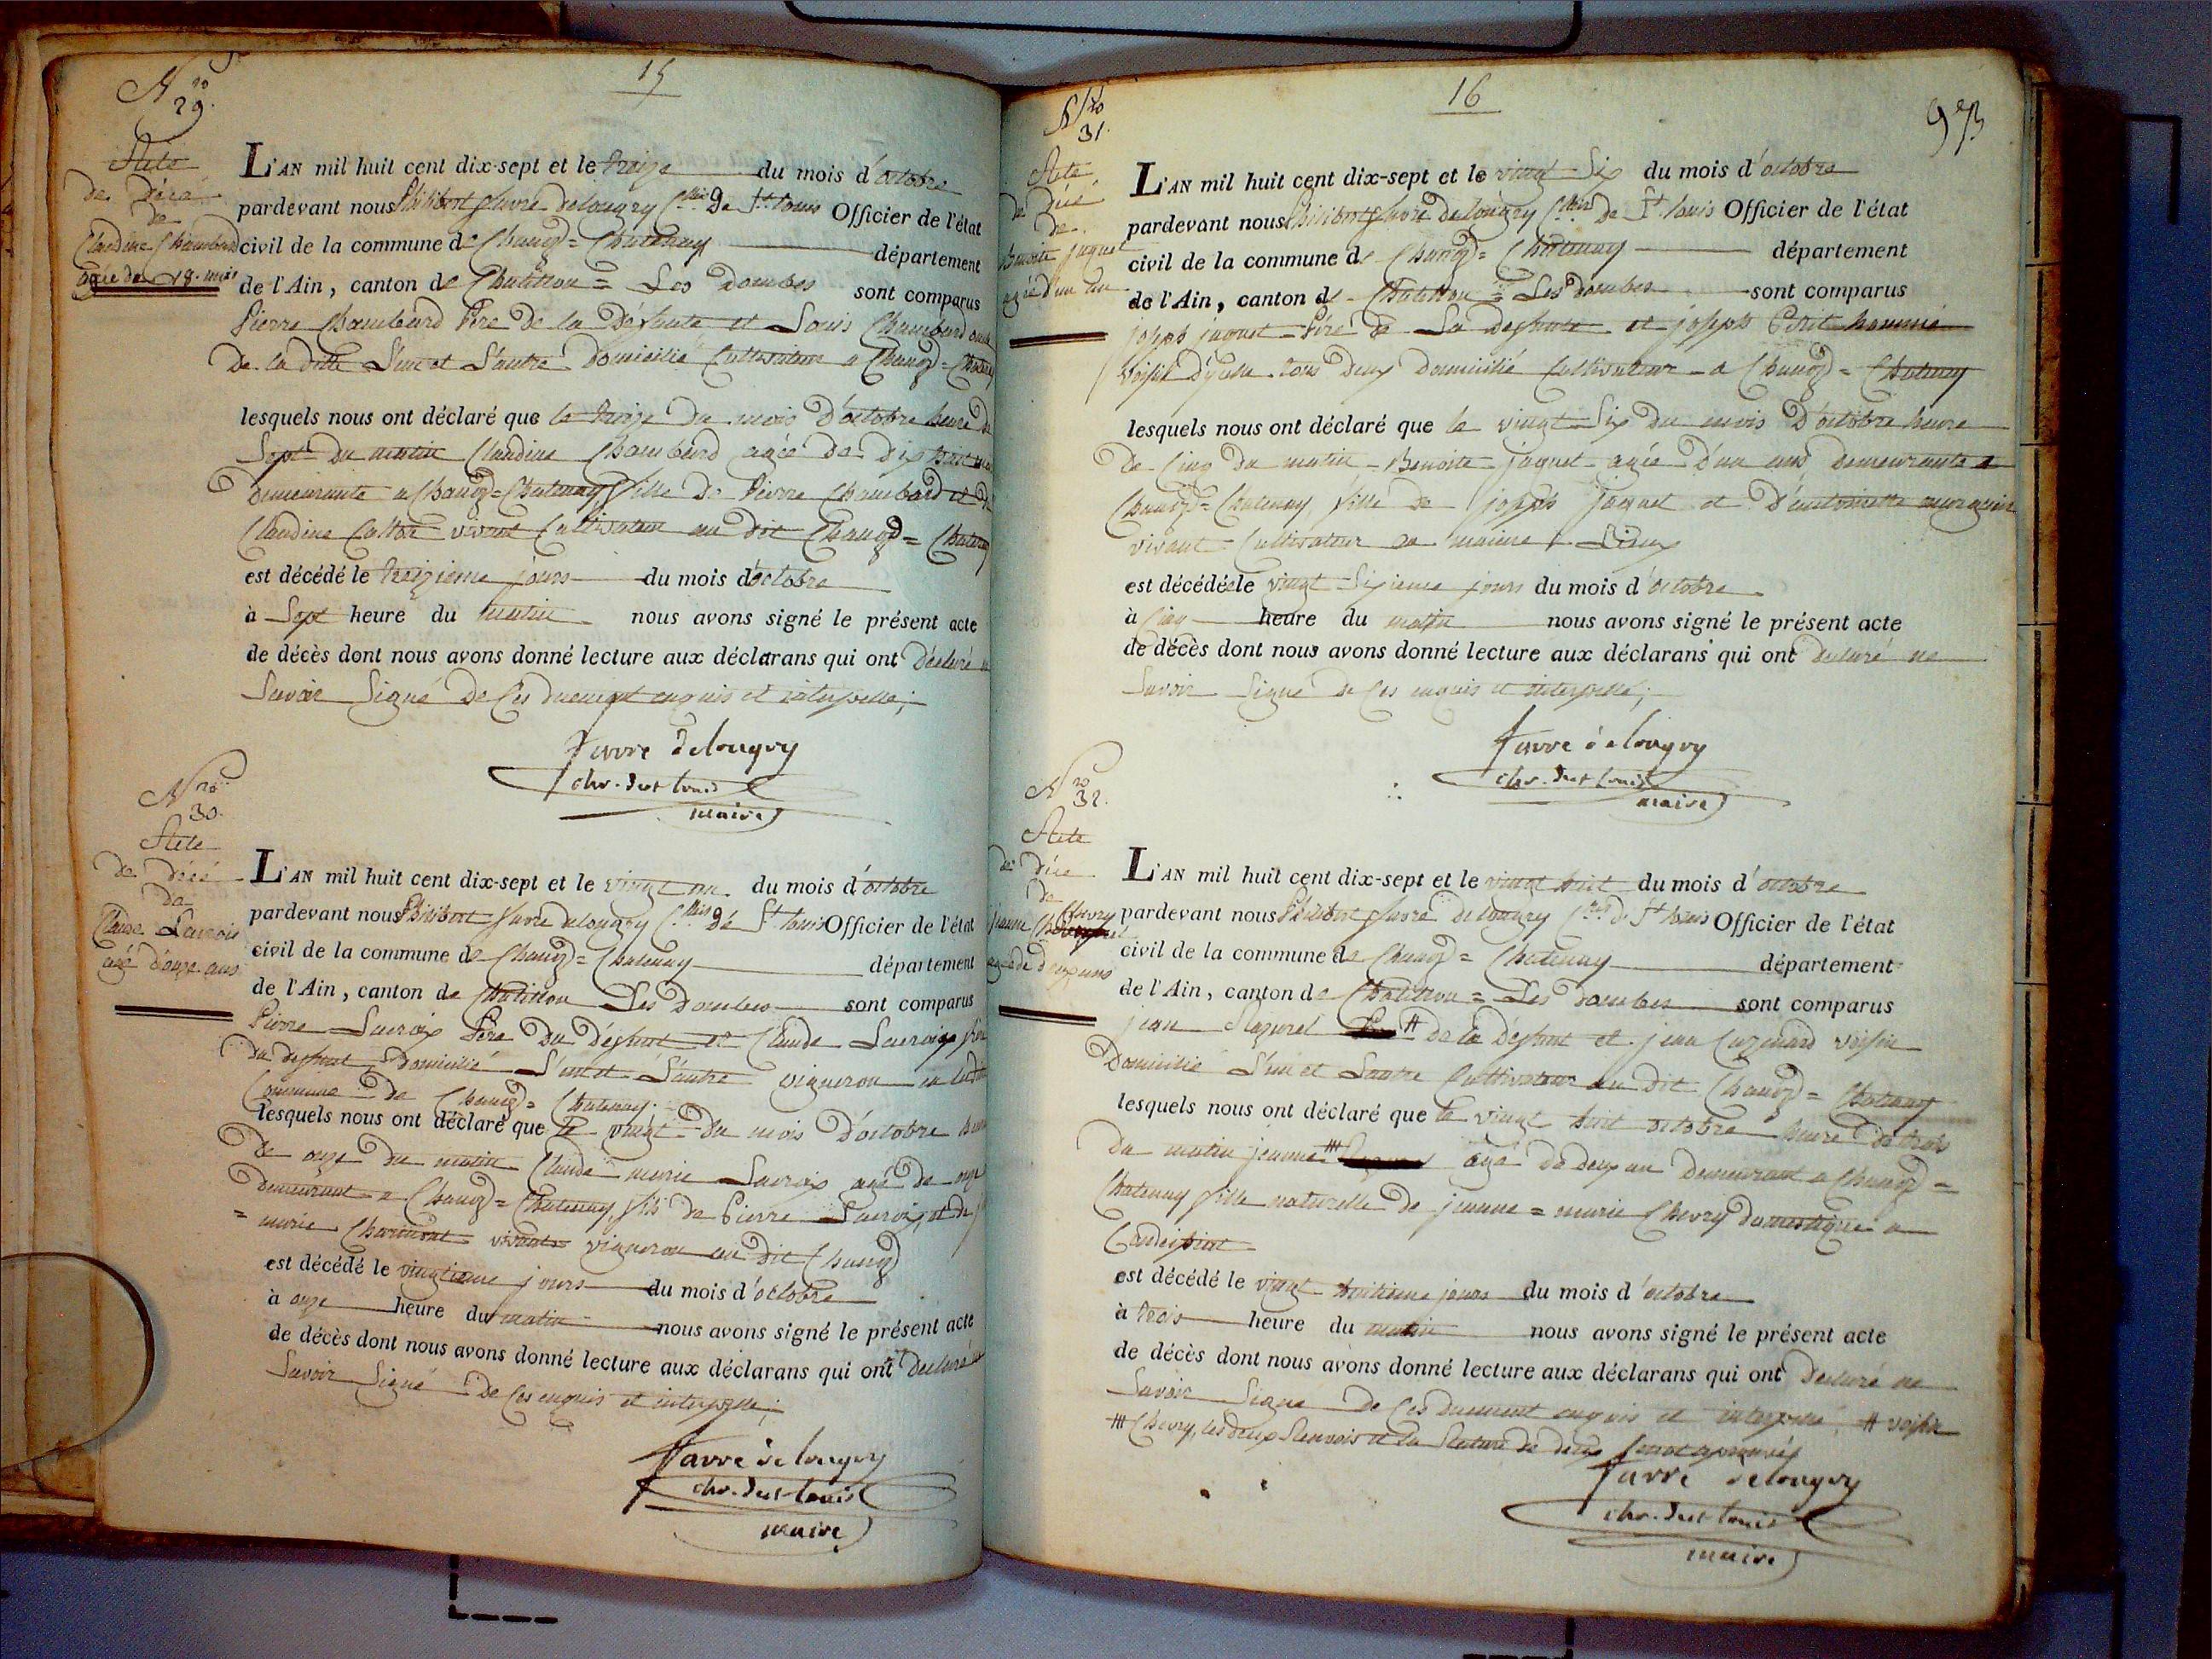 15
N.ro
29.
Acte
de décé
de
Claudine Chambard
agée de 18. mois
L'AN mil huit cent dix-sept et le treize du mois d'octobre
pardevant nous Philibert favre delongry Ch.lier De S.t louis Officier de l'état
civil de la commune de Chanoz=Chatenay département
de l'Ain, canton de Chatillon = Les Dombes sont comparus
Pierre Chambard Père De la Défunte et Louis Chambard oncle
De la ditte L'un et L'autre Domicilié Cultivateur a Chanoz=Chatenay
lesquels nous ont déclaré que le treize Du mois D'octobre heure de
Sept Du matin Claudine Chambard agée De Dix huit mois
Demeurante a Chanoz=Chatenay, fille De Pierre Chambard et de
Claudine vivant Cultivateur au dit Chanoz=Chatenay
est décédé le treizieme jours du mois d'octobre
à Sept heure du matin nous avons signé le présent acte
de décès dont nous avons donné lecture aux déclarans qui ont Déclaré ne
Savoir Signé De Ces duement enquis et interpelle;
favre delongry
chr. de st louis
maire
N.ro
30.
Acte
de décé
de
Claude Lacroix
agé d'onze ans
L'AN mil huit cent dix-sept et le vingt un du mois d'octobre
pardevant nous Philibert favre delongry Ch.lier De S.t louis Officier de l'état
civil de la commune de Chanoz=Chatenay département
de l'Ain, canton de Chatillon Les Dombes sont comparus
Pierre Lacroix Père Du Défunt et Claude Lacroix frère
Du defunt Domicilié L'un et L'autre vigneron en la
Commune De Chanoz=Chatenay.
lesquels nous ont déclaré que le vingt Du mois D'octobre heure
De onze du matin Claude marie Lacroix agé de onze
Demeurant a Chanoz=Chatenay, fils de Pierre Lacroix, et de
=marie vivants vigneron au dit Chanoz
est décédé le vingtieme jours du mois d'octobre
à onze heure du matin nous avons signé le présent acte
de décès dont nous avons donné lecture aux déclarans qui ont declaré ne
Savoir Signé De Ces enquis et interpelle;
favre delongry
chr. de st louis
maire
16
973
N.ro
31.
Acte
de décé
de
Benoite jaquet
agée d'un an
L'AN mil huit cent dix-sept et le vingt Six du mois d'octobre
pardevant nous Philibert favre delongry Ch.lier de S.t louis Officier de l'état
civil de la commune de Chanoz=Chatenay département
de l'Ain, canton de Chatillon = Les Dombes sont comparus
joseph jaquet Père de La defunte et joseph Petit homme
Voisin d'ycelle tous deux Domicilié Cultivateur a Chanoz=Chatenay
lesquels nous ont déclaré que le vingt Six du mois D'octobre heure
De Cinq du matin Benoite jaquet agée D'un ans demeurante a
Chanoz=Chatenay, fille de joseph jaquet et D'antoinette
vivant Cultivateur au meme Lieux
est décédée le vingt Sixieme jours du mois d'octobre
à Cinq heure du matin nous avons signé le présent acte
de décès dont nous avons donné lecture aux déclarans qui ont declaré ne
Savoir Signé de Ces enquis et interpellé;
favre delongry
chr. de st louis
maire
N.ro
32.
Acte
de décé
de
jeanne Chevry
agée de deux ans
L'AN mil huit cent dix-sept et le vingt huit du mois d'octobre
pardevant nous Philibert favre delongry Ch.lier de S.t louis Officier de l'état
civil de la commune de Chanoz=Chatenay département
de l'Ain, canton de Chatillon=Les Dombes sont comparus
jean # de la Défunt et jean voisin
Domicilié L'un et L'autre Cultivateur au dit Chanoz=Chatenay
lesquels nous ont déclaré que le vingt huit octobre heure de trois
Du matin jeanne ## agé de deux an Demeurant a Chanoz=
Chatenay fille naturelle de jeanne=marie Chevry domestique a
est décédé le vingt huitieme jours du mois d'octobre
à trois heure du matin nous avons signé le présent acte
de décès dont nous avons donné lecture aux déclarans qui ont Declaré ne
Savoir Signé De Ces Duement enquis et interpelle, # voisin
## Chevry, les deux Renvois et la Rature de deux mot aprouvés
favre delongry
chr. de st louis
maire